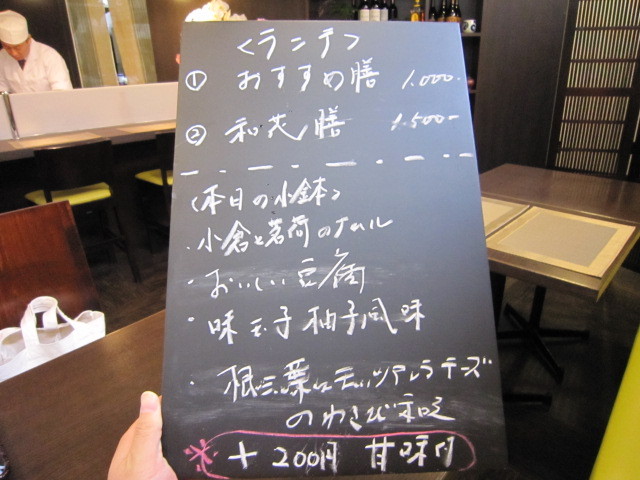 <ランチ>
① おすすめ膳 1,000-
② 和花膳 1,500-
<本日の小鉢>
・小倉と茗荷のナムル
・おいしい豆腐
・味玉子 柚子風味
・根三葉とモッツアレラチーズ
のわさび和え
※ + 200円 甘味付